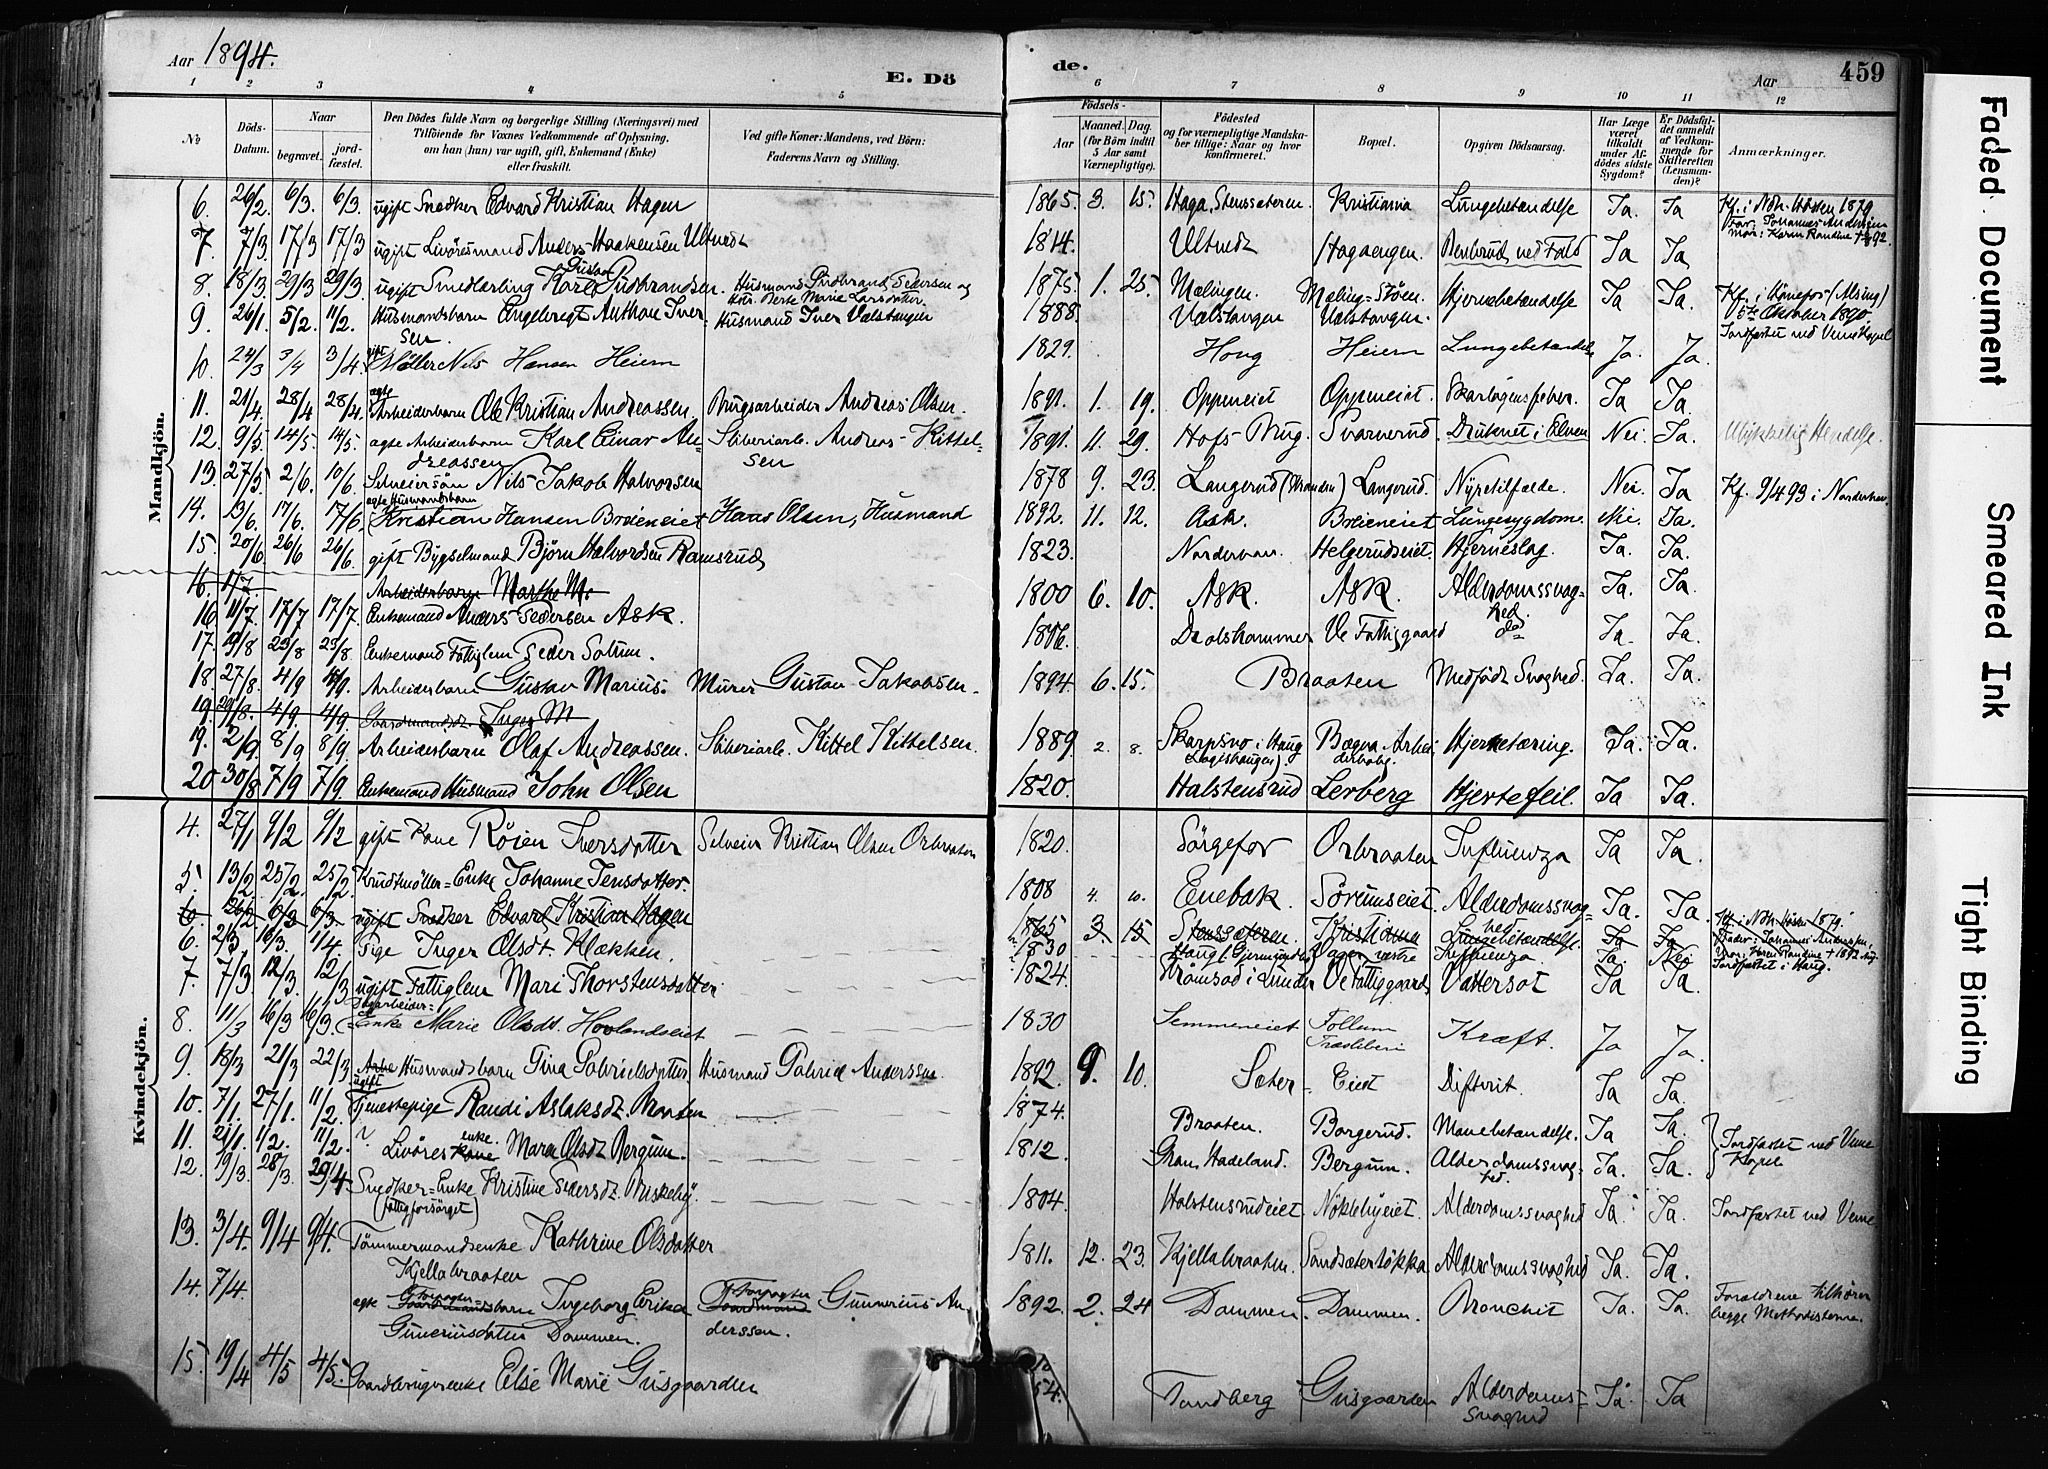 Aar 1894.
E. Dö
de.
Aar
459
1 2 3 4 5 6 7 8 9 10 11 12
No
Döds-Datum.
Naar
begravet.
jord-fæstet.
Den Dödes fulde Navn og borgerlige Stilling (Næringsvei) med
Tilföiende för Voxnes Vedkommende af Oplysning,
om han (hun) var ugift, gift, Enkemand (Enke)
eller fraskilt.
Ved gifte Koner: Mandens, ved Börn:
Faderens Navn og Stilling.
Födsels-
Aar
Maaned. Dag.
(for Börn indtil
5 Aar samt
Værnepligtige).
Födested
og for værnepligtige Mandska-
ber tillige: Naar og hvor
konfirmeret.
Bopæl.
Opgiven Dödsaarsag.
Har Læge
været
tilkaldt
under Af-
dödes sidste
Sygdom?
Er Dödsfal-
det anmeldt
af Vedkom-
mende for
Skifteretten
(Lensman-
den)?
Anmærkninger.
Mandkjön.
6. 26/2. 6/3. 6/3. ugift Snedker Edvard Kristian Hagen 1865. 3. 15. Haga, Stenssæteren Kristiania Lungebetændelse Ja. Ja Kf. i Ndh. Hösten 1879
7. 7/3. 17/3 17/3 ugift Livöresmand Anders Haakensen Ultvedt 1814. Ultvedt Hagaengen. Benbrud ved Fald Ja Ja
8. 18/3. 29/3 29/3. ugift Smedlærling Karl Gustav Gudbrandsen. Husmand Gudbrand Pedersen og 1875. 1. 25. Mælingen. Mæling-Stöen. Hjernebetændelse Ja Ja. Kf. i Hönefos
Marie Larsdatter.
5te Oktober 1890.
9. 26/1. 5/2. 11/2. Husmandsbarn Engebregt Anthon Iver- Husmand Iver Vælstangen 1888. Vælstangen Vælstangen. Jordfæstet ved Veme Kapel
sen.
10. 24/3 3/4 3/4. gift Möller Nils Hansen Heiern 1829. Houg Heiern Lungebetændelse Ja. Ja.
11. 21/4. 28/4 28/4. ægte Arbeiderbarn Ole Kristian Andreassen. Brugsarbeider Andreas Olsen. 1891. 1. 19. Oppeneiet Oppeneiet. Skarlagensfeber. Ja Ja.
12. 9/5 14/5 14/5. ægte Arbeiderbarn Karl Einar An- Sliberiarb. Andreas Kittel- 1891. 11. 29. Hofs-Brug. Svarverud. Druknet i Elven Nei. Ja. Ulykkelig Hendelse.
dreassen
sen
13. 27/5 2/6. 10/6. Selveiersön Nils Jakob Halvorsen 1878 9. 23. Langerud (Stranden) Langerud. Nyretilfælde. Nei. Ja Kf. 9/4 93 i Norderhov
14. 13/6. 17/6. 17/6. ægte Husmandsbarn Kristian Hansen Breieneiet Hans Olsen, Husmand 1892. 11. 12. Ask. Breieneiet Lungesygdom. Nei. Ja.
15. 20/6 26/6 26/6. gift Bygselmand Björn Halvordsen Ramsrud 1823. Norderhov. Helgerudseiet. Hjerneslag. Ja. Ja.
16. 11/7. Arbeiderbarn Marthe M.
16. 11/7. 17/7 17/7. Enkemand Anders Pedersen Ask. 1800 6. 10. Ask. Ask. Alderdomssvag-
hed. Ja. Ja
17. 19/8 23/8 23/8. Enkemand Fattiglem Peder Solum. Ve Fattiggaard do Ja. Ja.
18. 27/8. 4/9 4/9. Arbeiderbarn Gustav Marius. Murer Gustav Jakobsen. 1894 6. 15. Braaten Medfödt Svaghed. Ja. Ja
19. 29/8. 4/9. 4/9. Gaardmandsd. Inger M
19. 2/9. 8/9 8/9. Arbeiderbarn Olaf Andreassen. Sliberiarb. Kittel Kittelsen. 1889. 2. 8. Skarpsno i Haug Bægna Arbei- Hjernetæring. Ja. Ja.
derbolig.
20 30/8 7/9 7/9. Enkemand Husmand John Olsen 1820. Halstensrud Lerberg Hjertefeil. Ja Ja.
Kvindekjön.
4. 27/1 9/2 9/2 gift Kone Röien Iversdatter Selveier Kristian Olsen Orbraaten 1820. Sörgefos Orbraaten Influenza Ja Ja.
5. 13/2 25/2. 25/2. Krudtmöller-Enke Johanne Jensdatter. 1808 4. 10. Enebak. Sörumseiet. Alderdomssvag-
hed Ja. Ja.
6. 26/2 6/3 6/3. ugift Snedker Edvard Kristian Hagen 1865 3. 15 Stenssæteren. Kristiania Lungebetændelse. Ja Ja Kf. i Ndh. Hösten 1879.
6. 2/3 10/3. 11/4. Pige Inger Olsdt. Klækken. 1830 Influenza. Ja. Nei
7. 7/3 12/3. 12/3 ugift Fattiglem Mari Thorstensdatter 1824. Ve Fattiggaard Vattersot Ja Ja. Jordfæstet i Haug.
8. 11/3 16/3 16/3. Enke Marie Olsdt. Hovlandseiet 1830 Semmeneiet Follum Træsliberi Kræft. Ja Ja.
9. 18/3 21/3 22/3 Husmandsbarn Gina Gabrielsdatter Husmand Gabriel Anderssen. 1892. 9. 10. Sæter-Eiet Difterit. Ja Ja.
10. 7/1. 27/1. 11/2. ugift Tjenestepige Randi Aslaksdt. Braaten 1874. Braaten. Borgerud. Mavebetændelse. Ja Ja.
11. 21/1. 1/2. 11/2. Livöresenke Mari Olsdt Bergum. 1812. Gran, Hadeland. Bergum. Alderdomssvag-
hed. Ja. Ja. Jordfæstet ved Veme Kapel
12. 19/3. 28/3 29/4 Snedker-Enke Kristine Pedersdt. Briskeby.
(fattigforsörget) 1804 Halstensrudeiet. Nöklebyeiet. Alderdomssvaghed Ja. Ja. Jordfæstet ved Veme
13. 3/4. 9/4 9/4. Tömmermandsenke Kathrine Olsdatter
Kjellabraaten 1811. 12. 23. Kjellabraaten. Sandsæterlökka Alderdomssvaghed Ja. Ja.
14. 7/4. ægte Forpagter Gaardmandsbarn Ingeborg Erika Forpagter Gaardmand Gunnerius An- 1892. 2. 24 Dammen. Dammen. Bronchit Ja. Ja. Forældrene tilhörer
Guneriusdatter Dammen. derssen. begge Methodisterne.
15. 19/4 4/5 4/5. Gaardbrugerenke Else Marie Gusgaarden Tandberg Gusgaarden Alderdoms-
svaghed Ja. Ja
Faded Document
Smeared Ink
Tight Binding